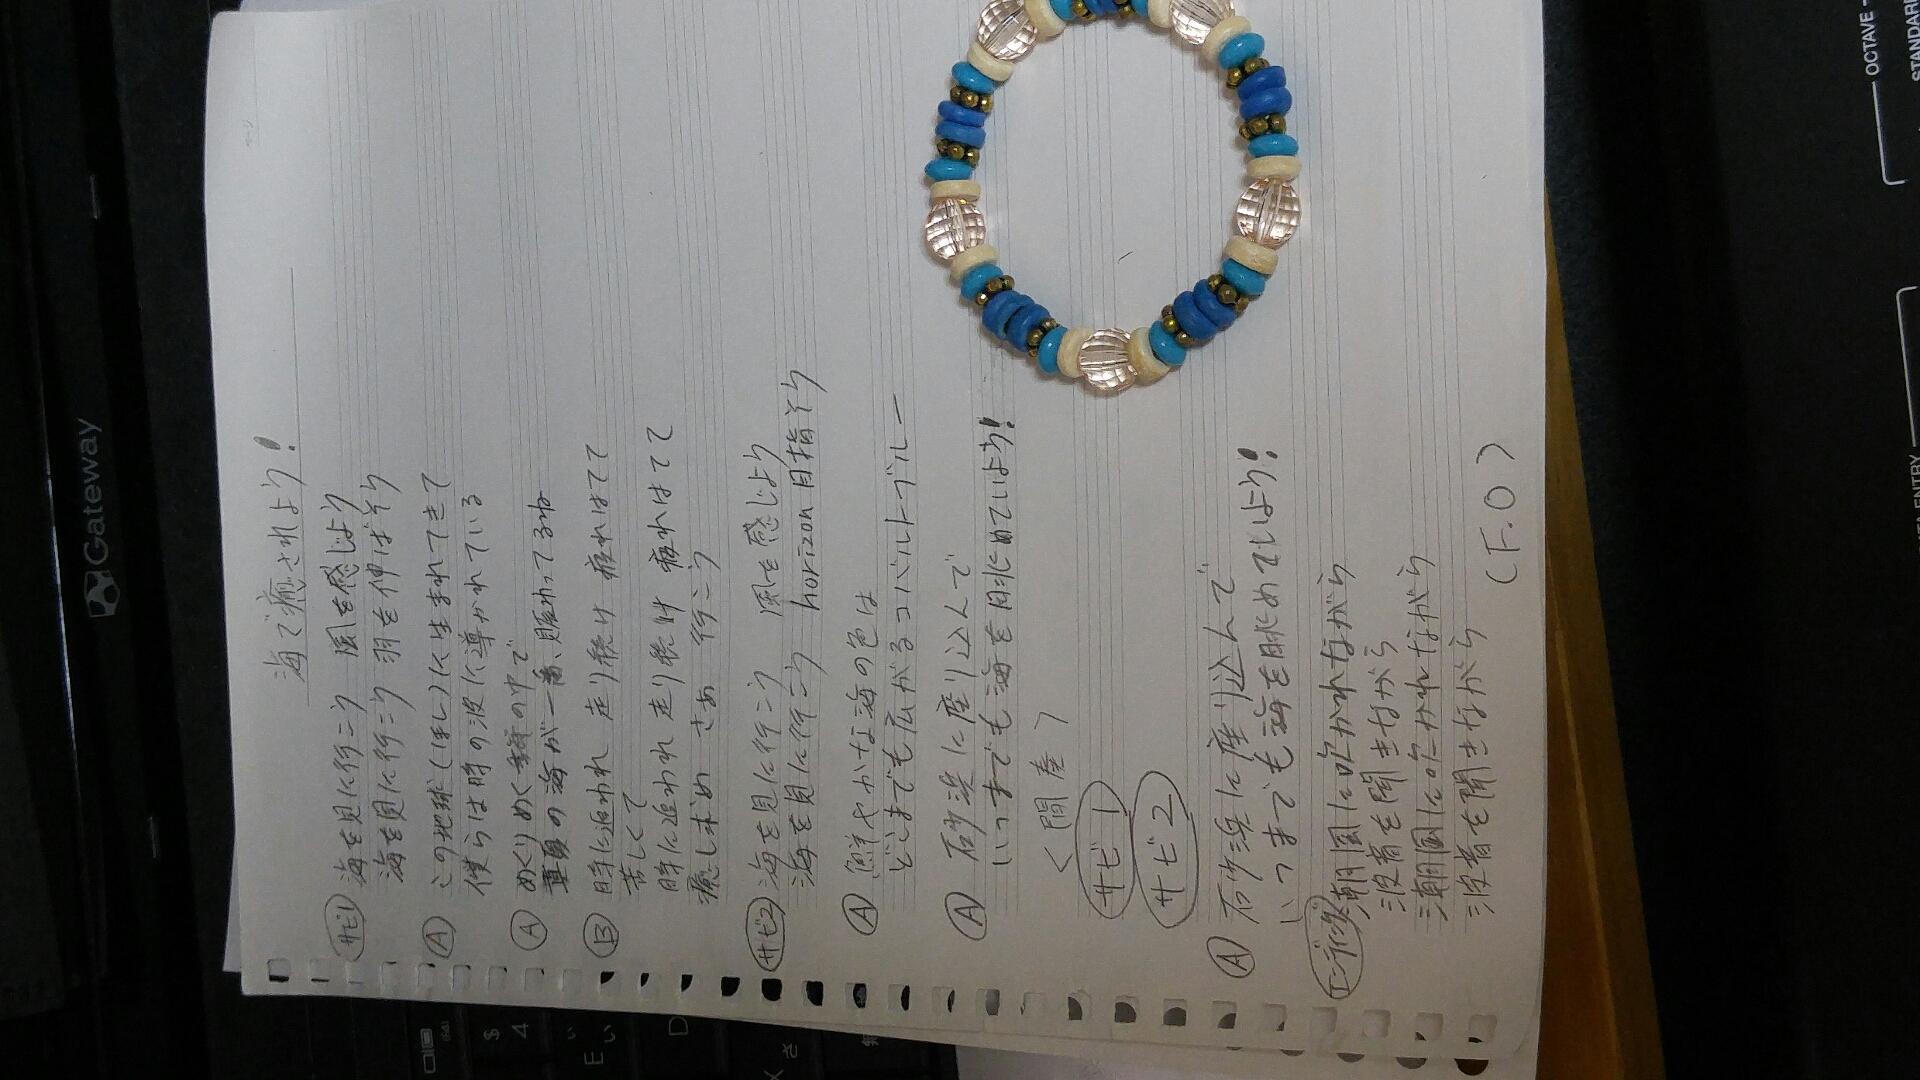 海で癒されよう!
サビ1 海を見に行こう 風を感じよう
海を見に行こう 羽を伸ばそう
A この地球(ほし)に生まれてきて
僕らは時の波に導かれている
A めくりめく の中で
真夏の海が一番、賑わってるね
B 時に追われ 走り続け 疲れはてて
苦しくて
時に追われ 走り続け 疲れはてて
癒し求め さあ 行こう
サビ2 海を見に行こう 風を感じよう
海を見に行こう horizon目指そう
A 鮮やかな海の色は
どこまでも広がるコバルトブルー
A 砂浜に座り込んで
いつまでも海を眺めていよう!
<間奏>
サビ1
サビ2
A 砂浜に座り込んで
いつまでも海を眺めていよう!
潮風に吹かれながら
波音を聞きながら
潮風に吹かれながら
波音を聞きながら
(F.O)
Gateway
OCTAVE
STANDARD
ENTRY
$
4
E
い
D
X
さ